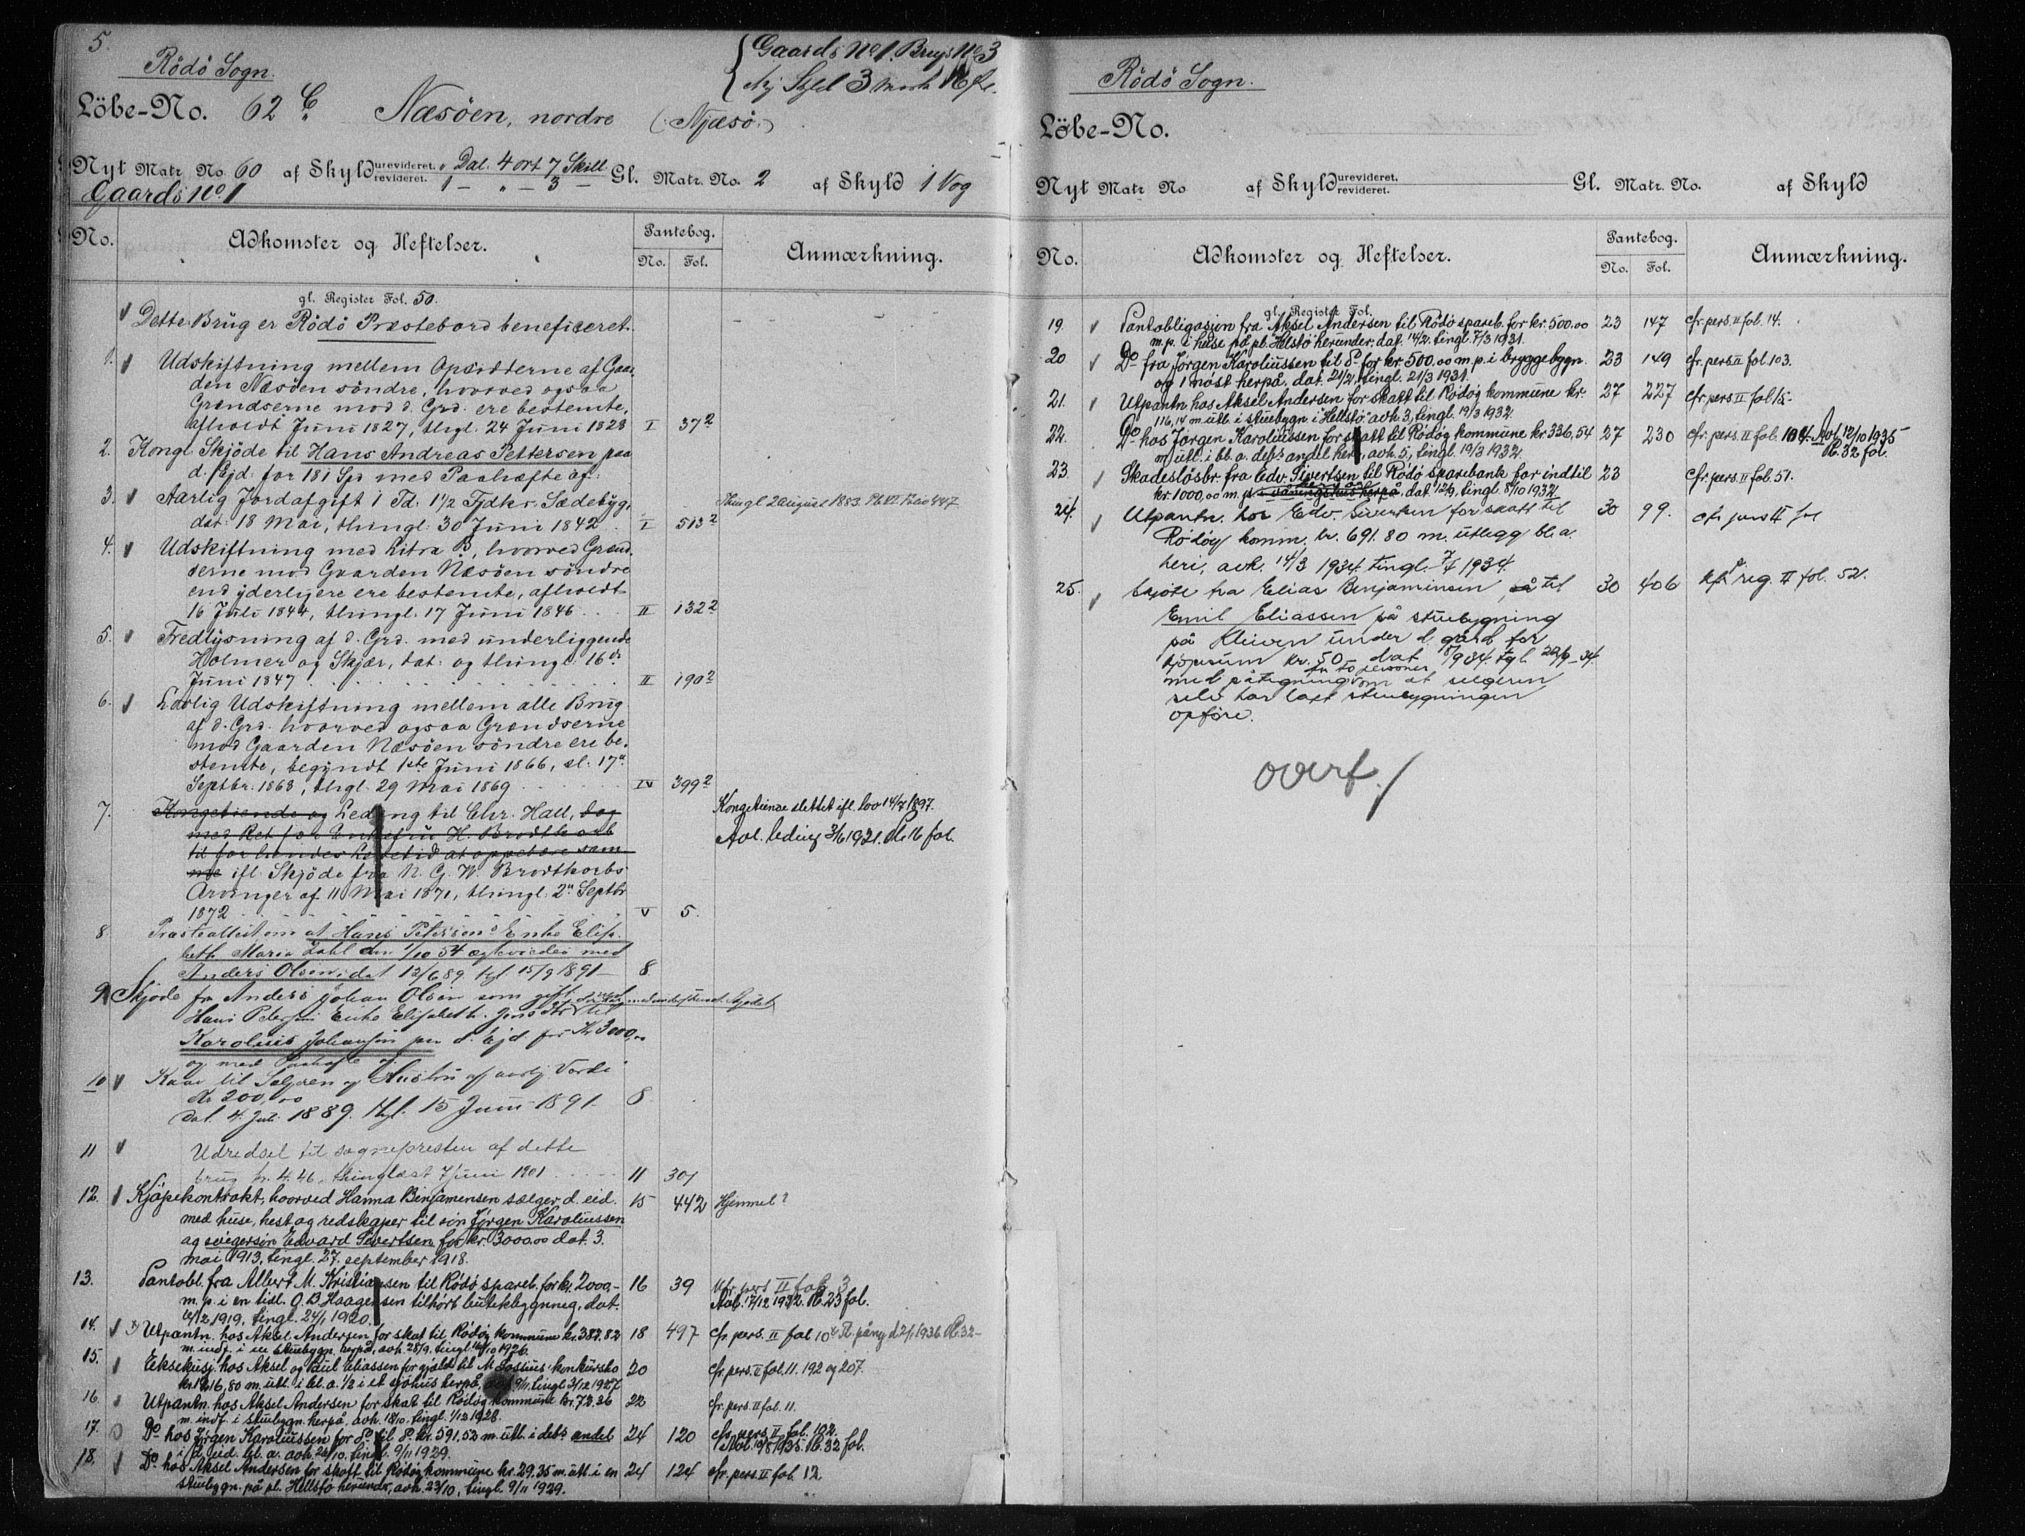 5.
Rödö Sogn.
{ Gaards No 1. Brugs No 3
{ Ny Skyld 3 mark 16 øre.
Löbe-No. 62 C Næsöen, nordre (Njæsö)
Nyt Matr. No. 60 af Skyld urevideret. " Dal. 4 ort 7 Skill. Gl. Matr. No. 2 af Skyld 1 Vog
revideret. 1 — " — 3 —
Gaards No. 1
No. Adkomster og Heftelser. Pantebog. Anmærkning.
No. Fol.
gl. Register Fol. 50.
Dette Brug er Rödö Præstebord beneficeret.
1. Udskiftning mellem Opsidderne af Gaar-
den Næsöen söndre, hvorved ogsaa
Grændserne mod d. Grd. ere bestemte,
afholdt Juni 1827, thgl. 24 Juni 1828 I 37²
2. Kongl. Skjöde til Hans Andreas Pettersen paa
d. Ejd. for 181 Spd med Paahæfte af:
3. Aarlig Jordafgift 1 Td. 1½ Fjdkr. Sædebyg, Thingl 2 August 1883. Pb. VI. Folio 447
dat: 18 Mai, thingl. 30 Juni 1842 I 513²
4. Udskiftning med Litra B, hvorved Grænd-
serne mod Gaarden Næsöen söndre
end yderligere ere bestemte, afholdt
16 Juli 1844, thingl. 17 Juni 1846 II 132²
5. Fredlysning af d. Grd. med underliggende
Holmer og Skjær, dat: og thingl. 16de
Juni 1847 II 190²
6. Lovlig Udskiftning mellem alle Brug
af d. Grd. hvorved ogsaa Grændserne
mod Gaarden Næsöen söndre ere be-
stemte, begyndt 1ste Juni 1866, sl. 17de
Septbr. 1868, thgl. 29 Mai 1869 IV 399²
7. Kongetiende og Leding til Chr. Hall, dog Kongetiende slettet ifl. Lov 14/7 1897.
med Ret for Enkefru H. Brodtkorb Avl. leding 3/6 1921. Pb. 16 fol.
til for hendes Levetid at oppebære sam-
me ifl. Skjöde fra N. G. W. Brodtkorbs
Arvinger af 11 Mai 1871, thingl. 2den Septbr.
1872 V 5.
8. Præsteattest om at Hans Petersens Enke Elisa-
beth Maria Dahl den 1/10 54 ægteviedes med
Anders Olsen, dat 12/6 89, tgl. 15/9 1891 8
9. Skjöde fra Anders Johan Olsen som gift
Hans Petersens Enke Elisabeth Jens Dtr til
Karolius Johansen paa d. Ejd for Kr 3000,00
og med Paahæfte af:
10 Kaar til Sælgeren og Hustru af aarlig Værdi
Kr 200,00
dat. 4. Juli 1889. tgl. 15 Juni 1891 8
11 Udredsel til sognepresten af dette
brug kr. 4.46, thinglæst 7 juni 1901 11 301
12. Kjöpekontrakt, hvorved Hanna Benjamensen sælger d. eid. 15 442 Hjemmel?
med huse, hest og redskaper til sön Jörgen Karoliussen
og svigersön Edvard Sivertsen for kr. 3000.00 dat. 3.
mai 1913, tingl. 27. september 1918.
13. Pantobl. fra Albert M. Kristiansen til Rödö spareb. for kr. 2000,- 16 39 cfr. pers II fol. 3
m. p. i en tidl. O. B. Haagensen tilhört butikbygning, dat. Avl. 17/12 1932. Pb. 23 fol.
12/12 1919, tingl. 24/1 1920.
14. Utpantn. hos Aksel Andersen for skat til Rödöy kommune kr. 382.82 18 497 cfr. pers. II fol 10
m. indf. i en stuebygn. herpå, avh. 28/9. tingl. 1926.
15. Eksekusj. hos Aksel og Paul Eliassen for gjæld til M. Lossius' konkursbo 20 cfr. pers. II fol. 11. 192 og 207.
kr. 1216,80 m. utl. i bl. a. 1/2 i et sjöhus herpå, 9/11, tingl 3/12 1927
16. Utpantn. hos Aksel Andersen for skat til Rödöy kommune kr. 72.36 22 cfr. pers. II fol. 11.
m. indf. i stuebygn. herpå, avh. 18/10. tingl. 1/12 1928.
17. Do hos Jörgen Karoliussen for do til do kr. 591.52 m. utl. i debs andel 24 120 cfr. pers. II fol. 102.
i d. eid. bl. a. avh. 22/10. tingl. 9/11 1929. Avl. 12/8 1935. Pb. 32 fol.
18. Do hos Aksel Andersen for skatt til Rödöy kommune kr. 29.35 m. utl. i en 24 124 cfr. pers. II fol. 12
stuebygn. på pl. Hellstö herunder, avh. 23/10, tingl. 9/11 1929.
Rödö Sogn.
Löbe-No.
Nyt Matr. No af Skyld urevideret. Gl. Matr. No. af Skyld
revideret.
No. Adkomster og Heftelser. Pantebog. Anmærkning.
No. Fol.
gl. Register Fol.
19. Pantobligasjon fra Aksel Andersen til Rödö spareb. for kr. 500.00 23 147 cfr. pers. II fol. 14.
m. p. i huse på pl. Hellstö herunder, dat. 14/2. tingl. 7/3 1931.
20 Do fra Jörgen Karoliussen til do for kr. 500,00 m. p. i bryggebygn. 23 149 cfr. pers II fol 103.
og 1 nöst herpå, dat. 21/2, tingl. 21/3 1931.
21. Utpantn hos Aksel Andersen for skatt til Rödöy kommune kr. 27 227 cfr. pers II fol 15.
116,14 m. utl. i stuebygn. i Hellstö avh. 3, tingl. 19/3 1932.
22. Do hos Jörgen Karoliussen for skatt til Rödöy kommune kr. 336,54 27 230 cfr. pers. II fol. 104. Avl 12/10 1935
m. utl. i bl. a. debs andel her, avh. 5, tingl. 19/3 1932. Pb. 32 fol.
23 Skadeslösbr. fra Edv. Sivertsen til Rödö sparebank for indtil 23 cfr. pers. II fol. 51.
kr 1000,00 m. p. i våningshus herpå, dat. 12/9, tingl. 8/10 1932.
24. Utpantn. hos Edv. Sivertsen for skatt til 30 99. cfr pers II fol
Rödöy komm. kr. 691.80 m. utlegg bl. a.
heri, avh. 14/3 1934. tingl. 7/4 1934.
25. Skjöte fra Elias Benjaminsen til 30 406 reg. II fol. 52.
Emil Eliassen på stuebygning
på Kleiven under d. gård for
kjöpsum kr. 50 dat 8/9 34. tgl. 22/9 - 34.
med påtegning fra to personer om at selgeren
selv har latt stuebygningen
opföre.
overf. /